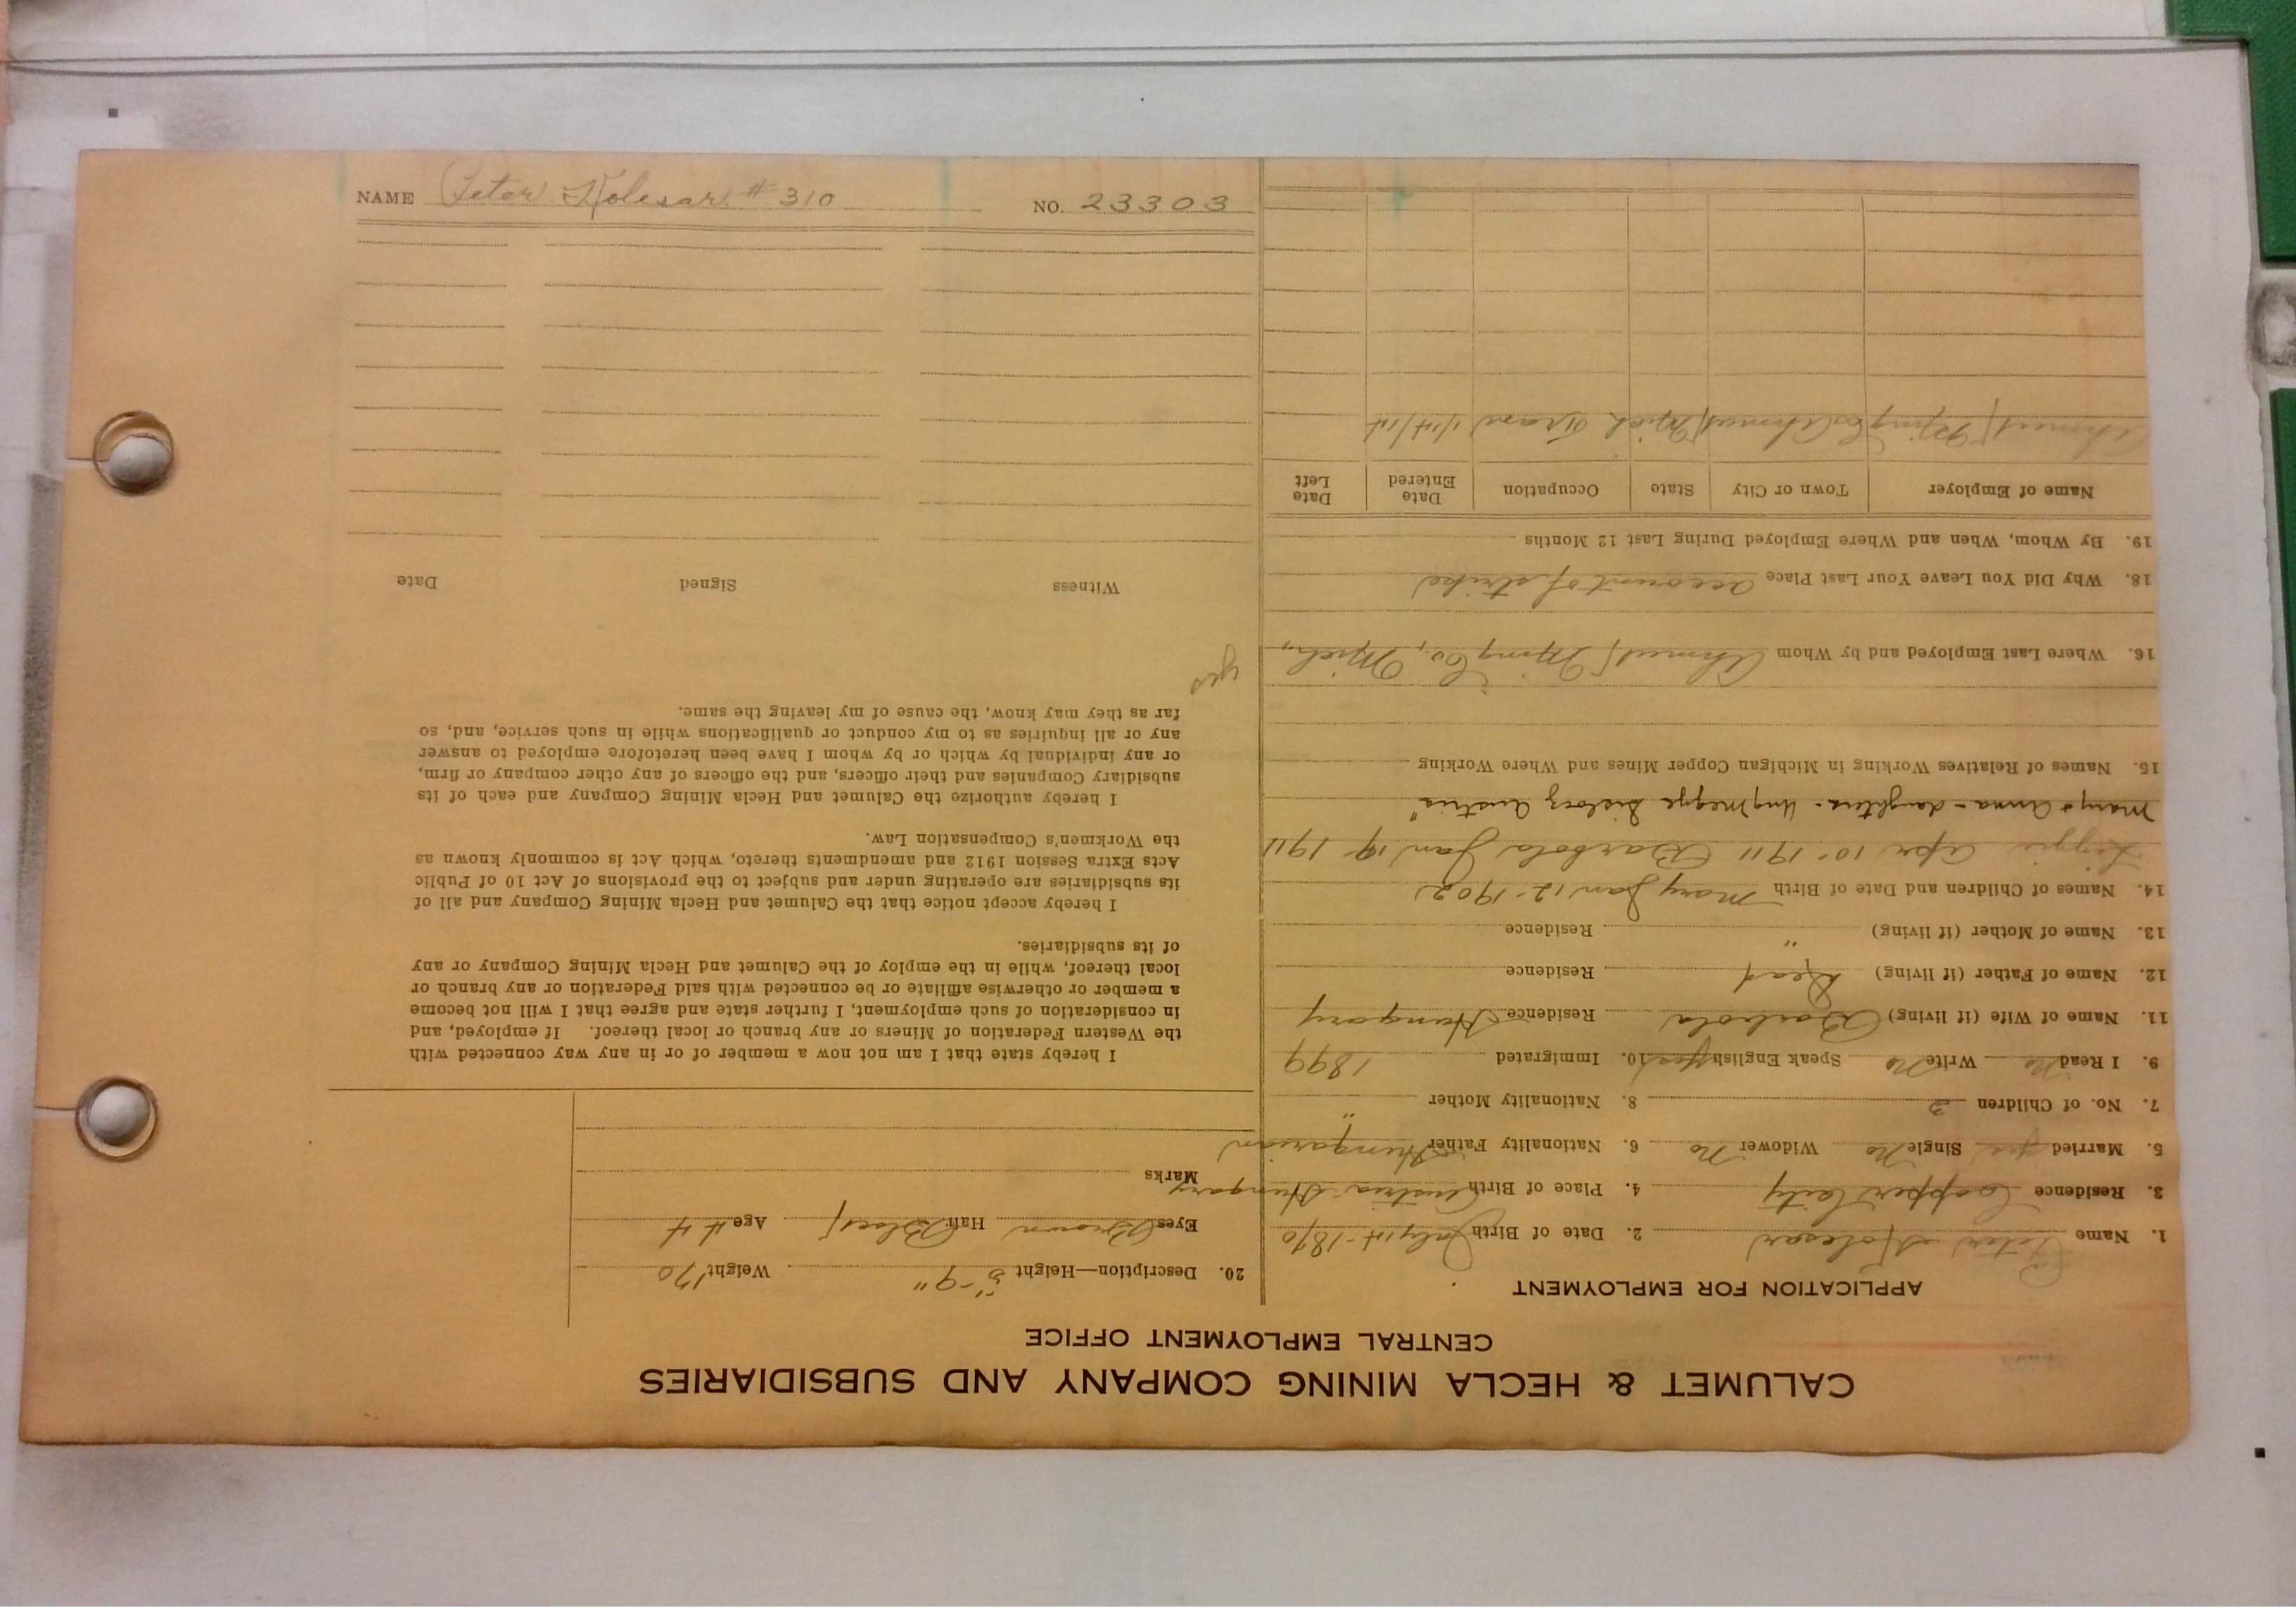 NAME Peter Kolesar #310 NO. 23303
CALUMET & HECLA MINING COMPANY AND SUBSIDIARIES
CENTRAL EMPLOYMENT OFFICE
APPLICATION FOR EMPLOYMENT
1. Name Peter Kolesar 2. Date of Birth July 1st-1870
3. Residence Copper City 4. Place of Birth Austria-Hungary
5. Married yes Single No Widower No 6. Nationality Father Hungarian
7. No. of Children 3 8. Nationality Mother "
9. I Read No Write No Speak English yes 10. Immigrated 1899
11. Name of Wife (if living) Barbola Residence Hungary
12. Name of Father (if living) Dead Residence
13. Name of Mother (if living) " Residence
14. Names of Children and Date of Birth Mary Jan 12-1902
Lizzie Apr 10-1911 Barbola Jan 19-1911
Mary & Anna - daughters - Ung Megye Austria"
15. Names of Relatives Working in Michigan Copper Mines and Where Working
16. Where Last Employed and by Whom Ahmeek Mining Co, Mich.,
18. Why Did You Leave Your Last Place account of strike
19. By Whom, When and Where Employed During Last 12 Months
Name of Employer Town or City State Occupation Date Entered Date Left
Ahmeek Mining Co Ahmeek Mich Tram
20. Description—Height 5'-9" Weight 170
Eyes Brown Hair Black Age 44
Marks
I hereby state that I am not now a member of or in any way connected with
the Western Federation of Miners or any branch or local thereof. If employed, and
in consideration of such employment, I further state and agree that I will not become
a member or otherwise affiliate or be connected with said Federation or any branch or
local thereof, while in the employ of the Calumet and Hecla Mining Company or any
of its subsidiaries.
I hereby accept notice that the Calumet and Hecla Mining Company and all of
its subsidiaries are operating under and subject to the provisions of Act 10 of Public
Acts Extra Session 1912 and amendments thereto, which Act is commonly known as
the Workmen's Compensation Law.
I hereby authorize the Calumet and Hecla Mining Company and each of its
subsidiary Companies and their officers, and the officers of any other company or firm,
or any individual by which or by whom I have been heretofore employed to answer
any or all inquiries as to my conduct or qualifications while in such service, and, so
far as they may know, the cause of my leaving the same.
yes
Witness Signed Date